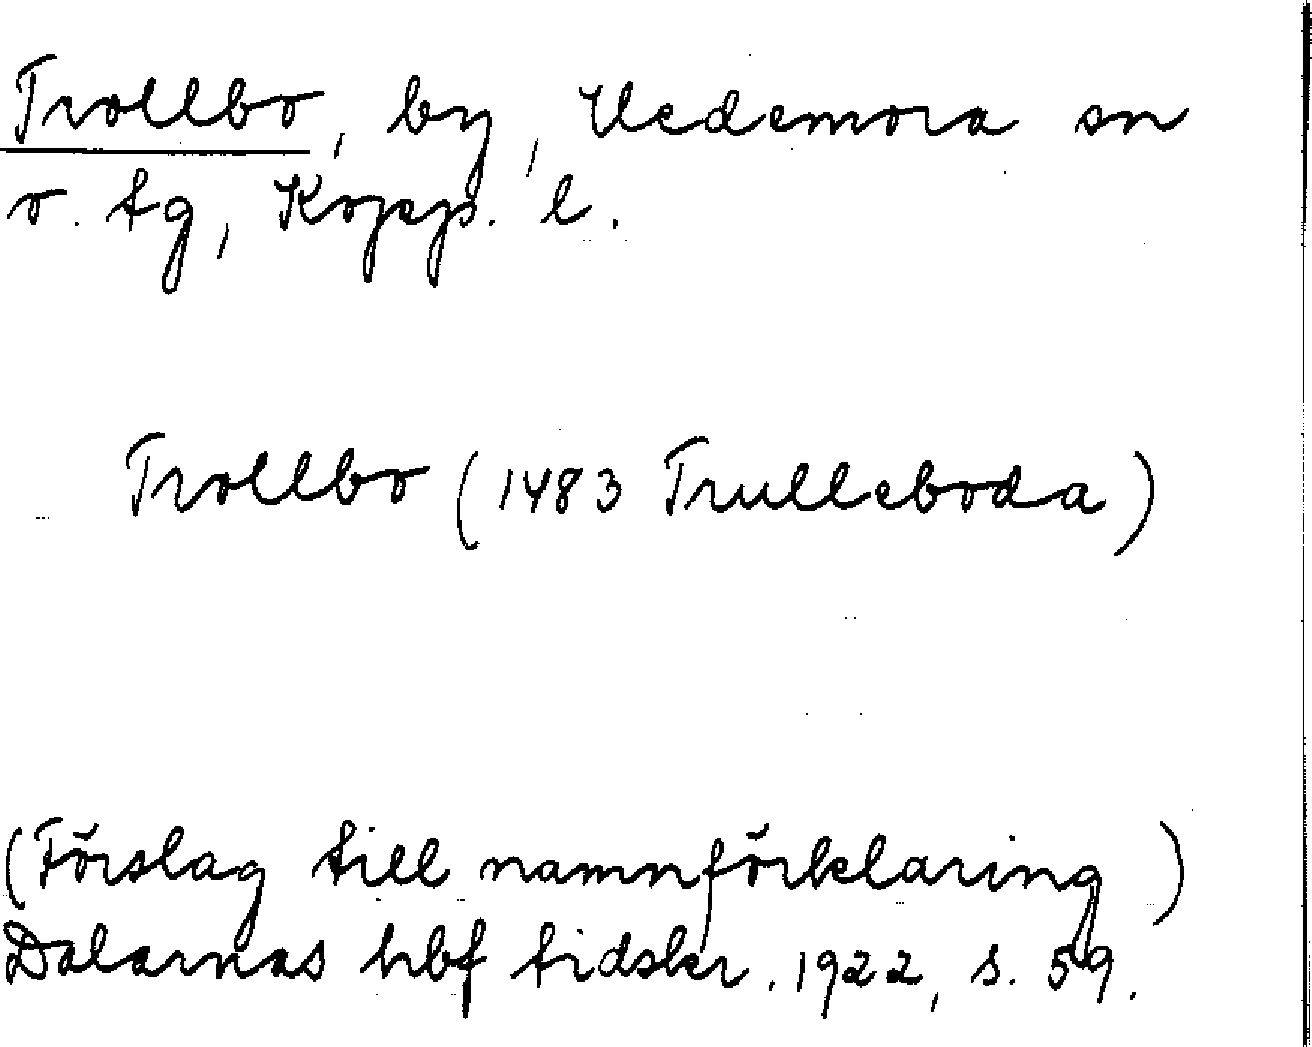 Trollbo, by, Hedemora sn
o. tg, Kopp. l.
Trollbo (1483 Trulleboda)
(Förslag till namnförklaring)
Dalarnas hbf tidskr. 1922, s. 59.